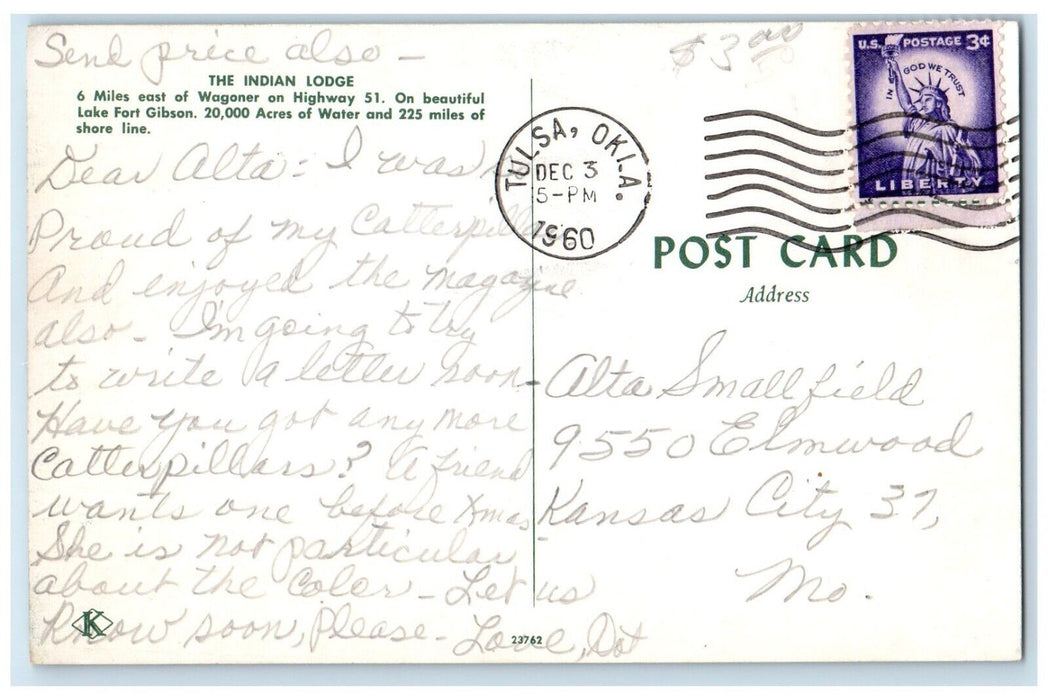 Send price also -
$3.00
50
THE INDIAN LODGE
6 Miles east of Wagoner on Highway 51. On beautiful
Lake Fort Gibson. 20,000 Acres of Water and 225 miles of
shore line.
Dear Alta: I was
Proud of my Catterpillar
And enjoyed the magazine
also - I'm going to try
to write a letter soon -
Have you got any more
Catterpillars? A friend
wants one before Xmas
She is not particular
about the Color - Let us
Know soon, Please - Love, Dot
K
23762
TULSA, OKLA.
DEC 3
5-PM
1960
U.S. POSTAGE 3¢
IN GOD WE TRUST
LIBERTY
POST CARD
Address
Alta Smallfield
9550 Elmwood
Kansas City 37,
Mo.